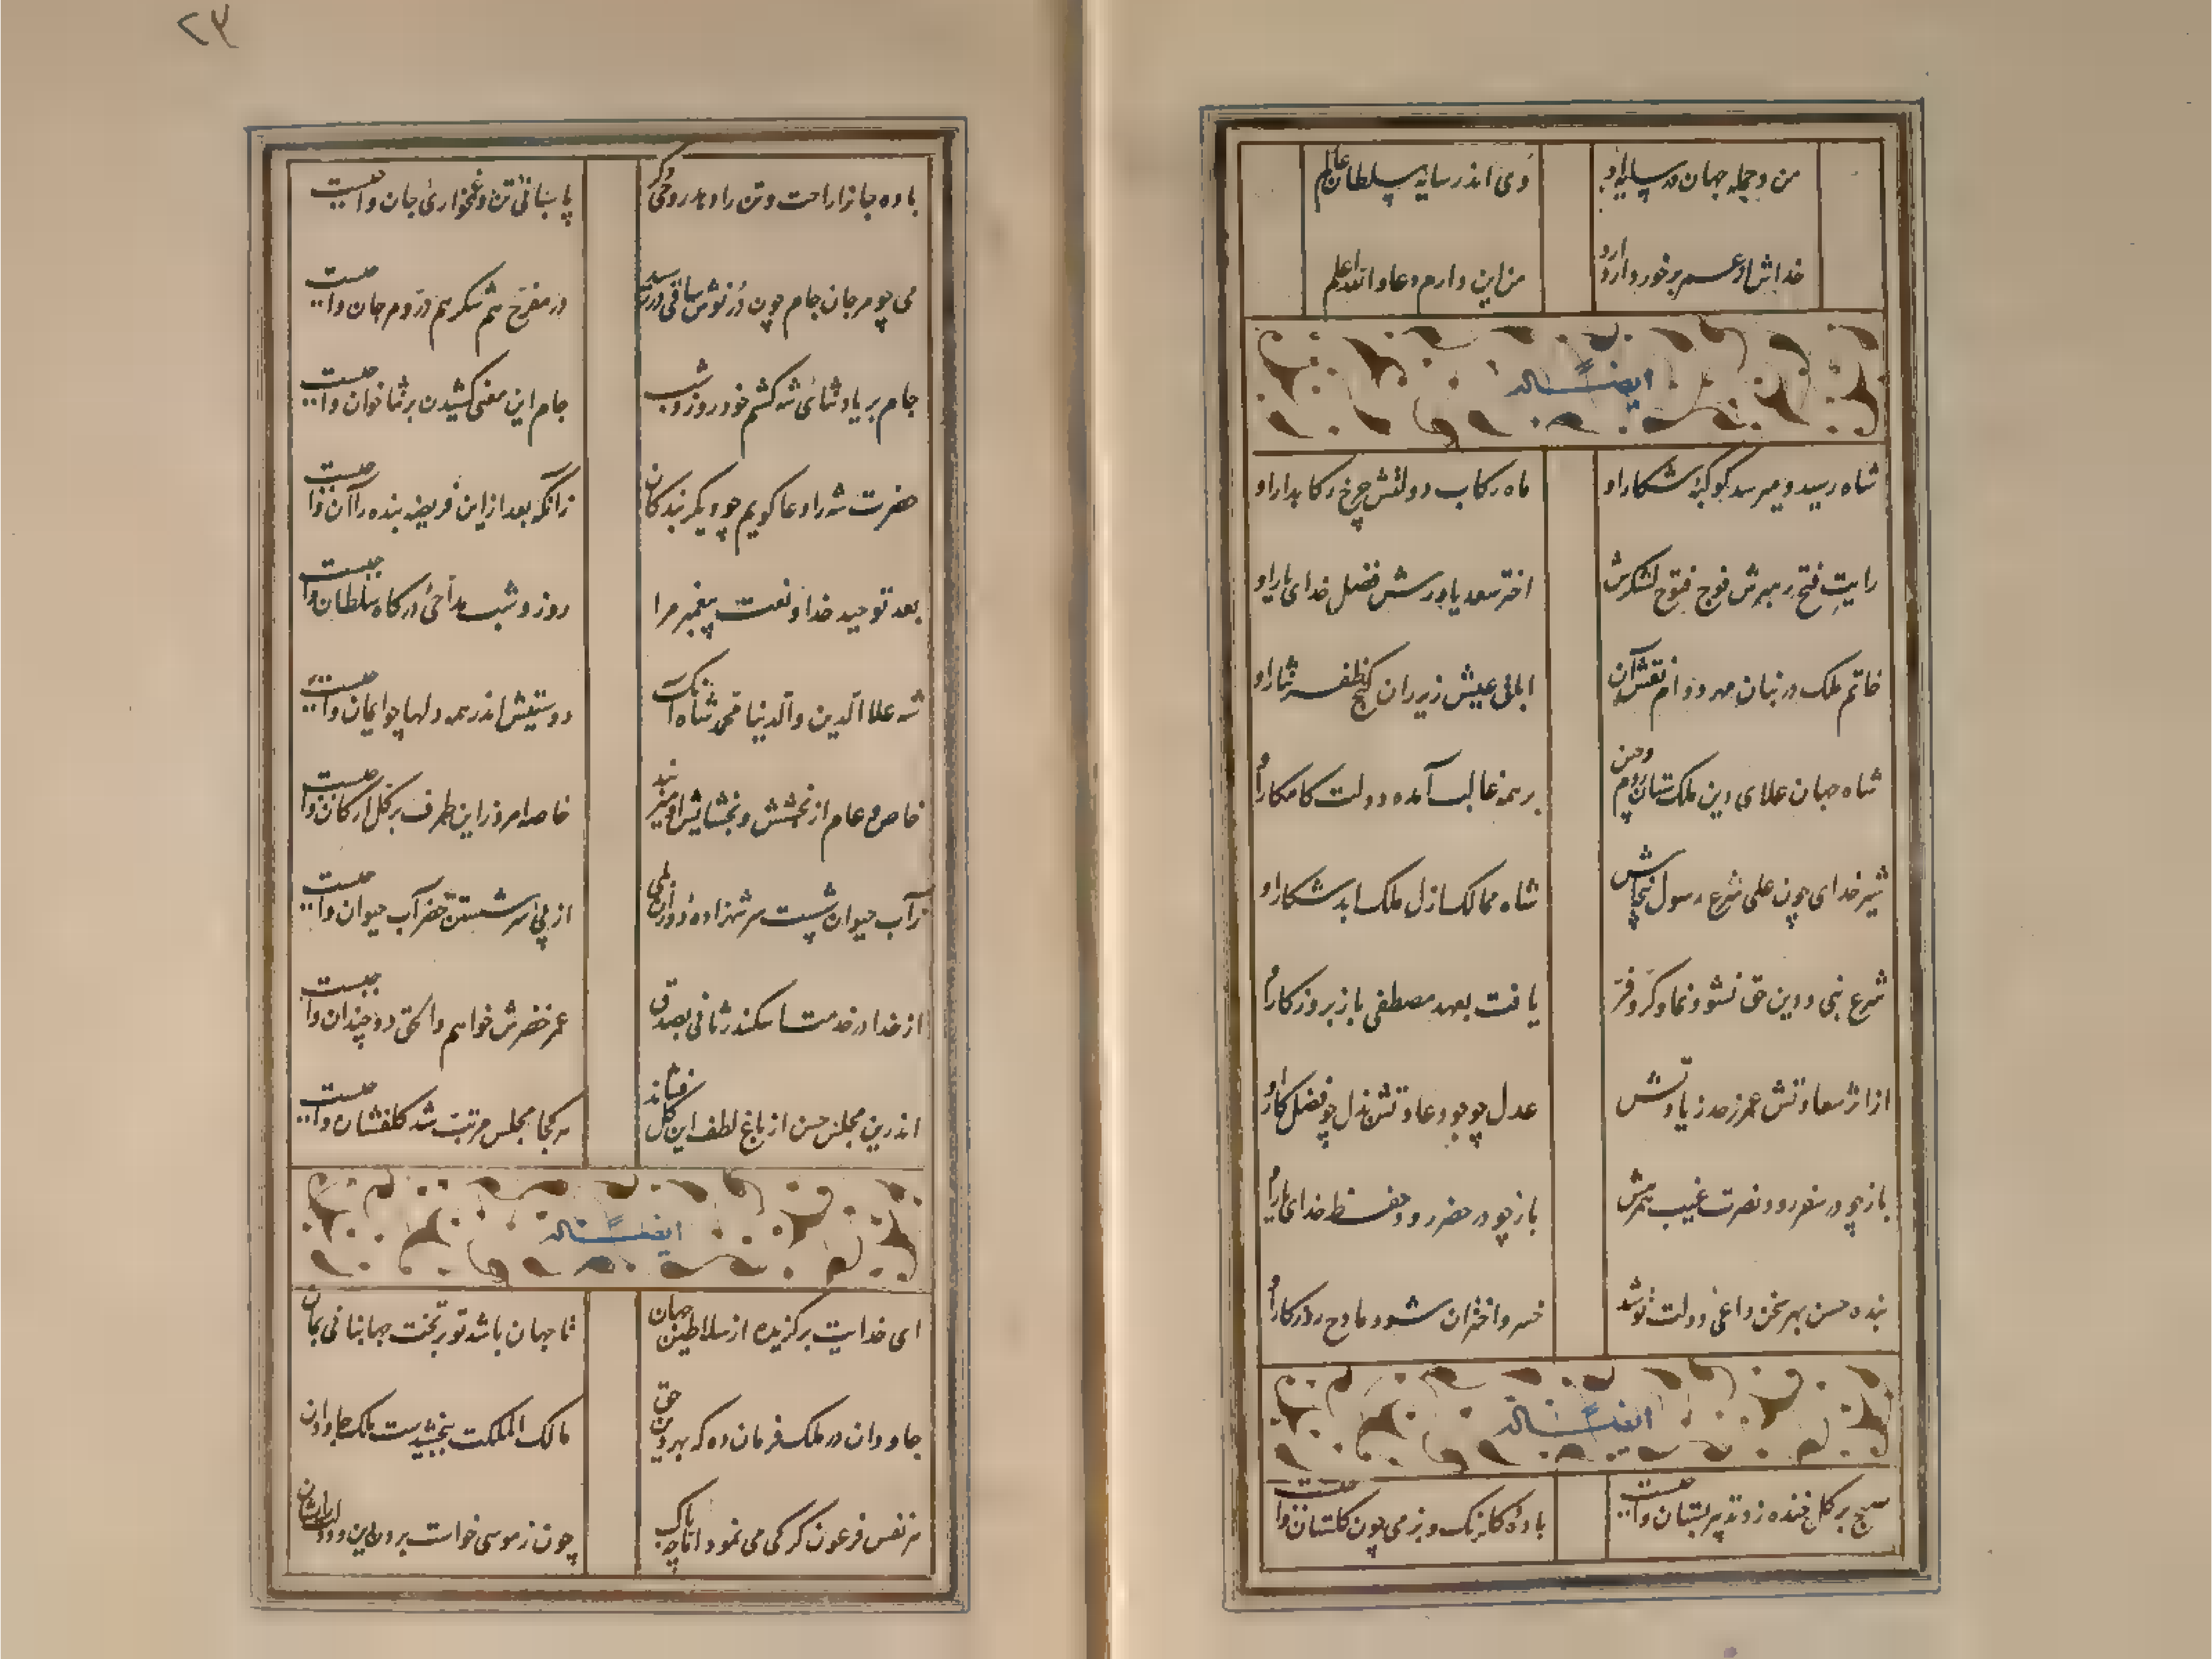 من و جمله جهان در سایهٔ او
وی اندر سایهٔ سلطان عالم
خداش از عمر برخوردار دارد
من این دارم دعا والله اعلم
ایضاً له
شاه رسید و میرسد کوکبهٔ شکار او
ماه رکاب دولتش چرخ رکابدار او
رایت فتح رهبرش فوج فتوح لشکرش
اختر سعد یاورش فضل خدای یار او
خاتم ملک در بنان مهر دوام نقش آن
ابلق عیش زیر ران گنج ظفر نثار او
شاه جهان علای دین ملک ستان روم و چین
بر همه غالب آمده دولت کامکار او
شیر خدای چون علی شرع رسول
شاه ممالک ازل ملک ابد شکار او
شرع نبی و دین حق نشو و نما و کر و فر
یافت بعهد مصطفی باز بروزکار او
از اثر سعادتش عمر ز حد زیادتش
عدل چو جود عادتش بذل چو فضل کار او
باز چو در سفر رود نصرت غیب همرهش
باز چو در حضر رود حفظ خدای یار او
بنده حسن بهر سخن داعی دولت نو شد
خسرو اختران شود مادح روزکار او
ایضاً له
صبح بر گل خنده زد تدبیر بستان واجبست
بادهٔ گلرنک و بزمی چون گلستان واجبست
۲۳
باده جانرا راحت و تن را دهد روحی دکر
پاسبانی تن و غمخواری جان واجبست
می چو مرجان جام چون در نوش ساقی در رسید
در مفرح هم شکر هم در و مرجان واجبست
جام بر یاد ثنای شه کشم خود روز و شب
جام این معنی کشیدن بر ثنا خوان واجبست
حضرت شه را دعا کویم چو دیکر بندکان
زانکه بعد از این فریضه بنده را آن واجبست
بعد توحید خدا و نعت پیغمبر مرا
روز و شب مداحی درکاه سلطان واجبست
شه علاء الدین والدنیا محمد شاه آنک
دوستیش اندر همه دلها چو ایمان واجبست
خاص و عام از بخشش و بخشایش او
خاصه امروز این طرف بر کل ارکان واجبست
زآب حیوان شست سر شهزاده
از پی سر شستن خضر آب حیوان واجبست
از خدا در خدمت اسکندر ثانی بصدق
عمر خضرش خواهم والحق دو چندان واجبست
اندرین مجلس حسن از باغ لطف این کل فشاند
هر کجا مجلس مرتب شد کلفشان واجبست
ایضاً له
ای خدایت برکزیده از سلاطین جهان
تا جهان باشد تو بر تخت جهانبانی بمان
جاودان در ملک فرمان ده که بهر دین حق
مالک الملکت ببخشیدست ملک جاودان
هر نفس فرعون کر کی می نمود
چون ز موسی خواست بردن این